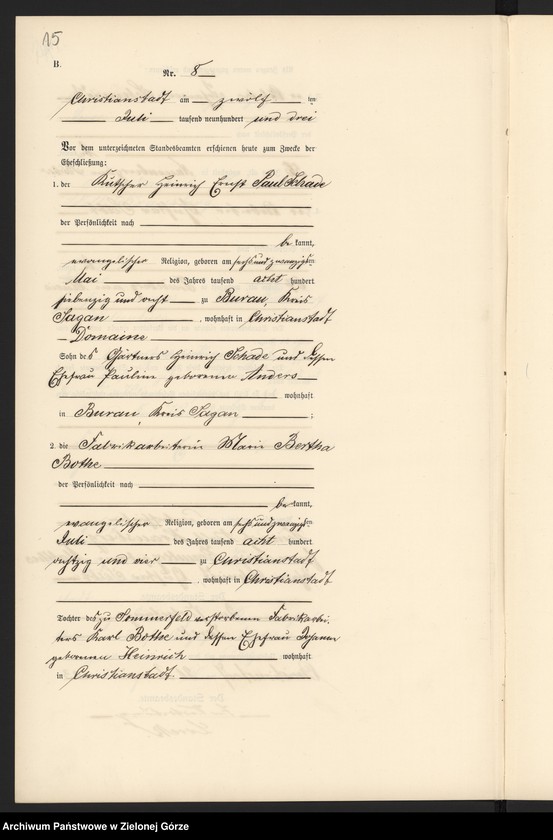 15
B.
Nr. 8
Christianstadt am zwölf ten
Juli tausend neunhundert und drei
Vor dem unterzeichneten Standesbeamten erschienen heute zum Zwecke der
Eheschließung:
1. der Kutscher Heinrich Ernst Paul Schade
der Persönlichkeit nach
be kannt,
evangelischer Religion, geboren am sechsundzwanzigsten
Mai des Jahres tausend acht hundert
siebenzig und acht zu Burau, Kreis
Sagan, wohnhaft in Christianstadt
- Domaine
Sohn des Gärtners Heinrich Schade und dessen
Ehefrau Pauline geborenen Anders
wohnhaft
in Burau, Kreis Sagan ;
2. die Fabrikarbeiterin Marie Bertha
Bothe
der Persönlichkeit nach
be kannt,
evangelischer Religion, geboren am sechsundzwanzigsten
Juli des Jahres tausend acht hundert
achtzig und vier zu Christianstadt
, wohnhaft in Christianstadt
Tochter des zu Sommerfeld verstorbenen Fabrikarbei-
ters Karl Bothe und dessen Ehefrau Johanne
geborenen Heinrich wohnhaft
in Christianstadt.
Archiwum Państwowe w Zielonej Górze